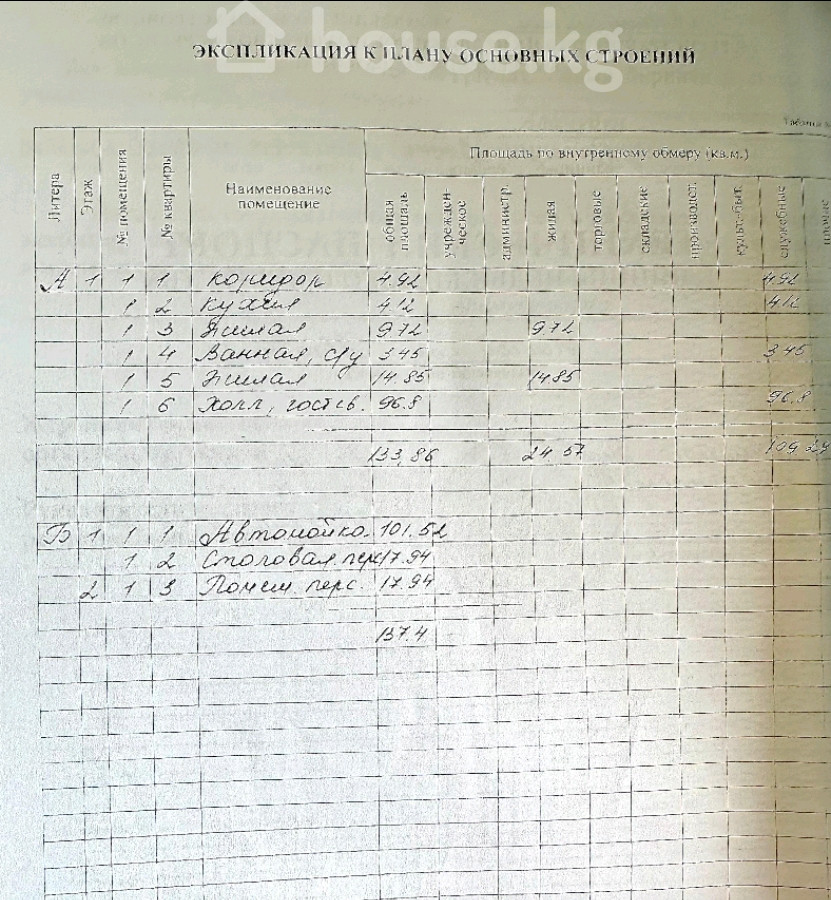 house.kg
ЭКСПЛИКАЦИЯ К ПЛАНУ ОСНОВНЫХ СТРОЕНИЙ
Таблица
Литера Этаж № помещения № квартиры Наименование помещение Площадь по внутреннему обмеру (кв.м.)
общая площадь учрежден ческое администр. жилая торговые складские производст. культ-быт. служебные прочие
А 1 1 1 коридор 4.92 4.92
1 2 кухня 4.12 4.12
1 3 Жилая 9.72 9.72
1 4 Ванная, с/у 3.45 3.45
1 5 Жилая 14.85 14.85
1 6 Холл, гост.в. 96.8 96.8
133,86 24.57 109.29
Б 1 1 1 Автомойка 101.52
1 2 Столовая перс 17.94
2 1 3 Помещ. перс. 17.94
137.4